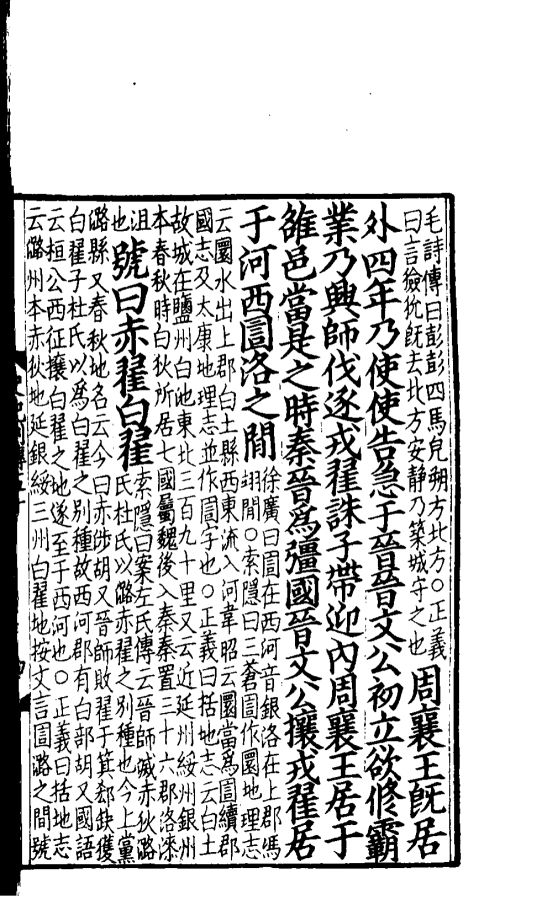 毛詩傳曰彭彭四馬皃朔方北方○正義
曰言獫狁旣去北方安靜乃築城守之也
周襄王旣居
外四年乃使使告急于晉晉文公初立欲修霸
業乃興師伐逐戎翟誅子帶迎內周襄王居于
雒邑當是之時秦晉爲彊國晉文公攘戎翟居
于河西圁洛之間
徐廣曰圁在西河音銀洛在上郡馮
翊間○索隱曰三蒼圁作圜地理志
云圜水出上郡白土縣西東流入河韋昭云圜當爲圁續郡
國志及太康地理志並作圁字也○正義曰括地志云白土
故城在鹽州白池東北三百九十里又云近延州綏州銀州
本春秋時白狄所居七國屬魏後入秦秦置三十六郡洛漆
沮
也
號曰赤翟白翟
索隱曰案左氏傳云晉師滅赤狄潞
氏杜氏以潞赤翟之別種也今上黨
潞縣又春秋地名云今曰赤涉胡又晉師敗翟于箕郄缺獲
白翟子杜氏以爲白翟之別種故西河郡有白部胡又國語
云桓公西征攘白翟之地遂至于西河也○正義曰括地志
云潞州本赤狄地延銀綏三州白翟地按文言圁潞之間號